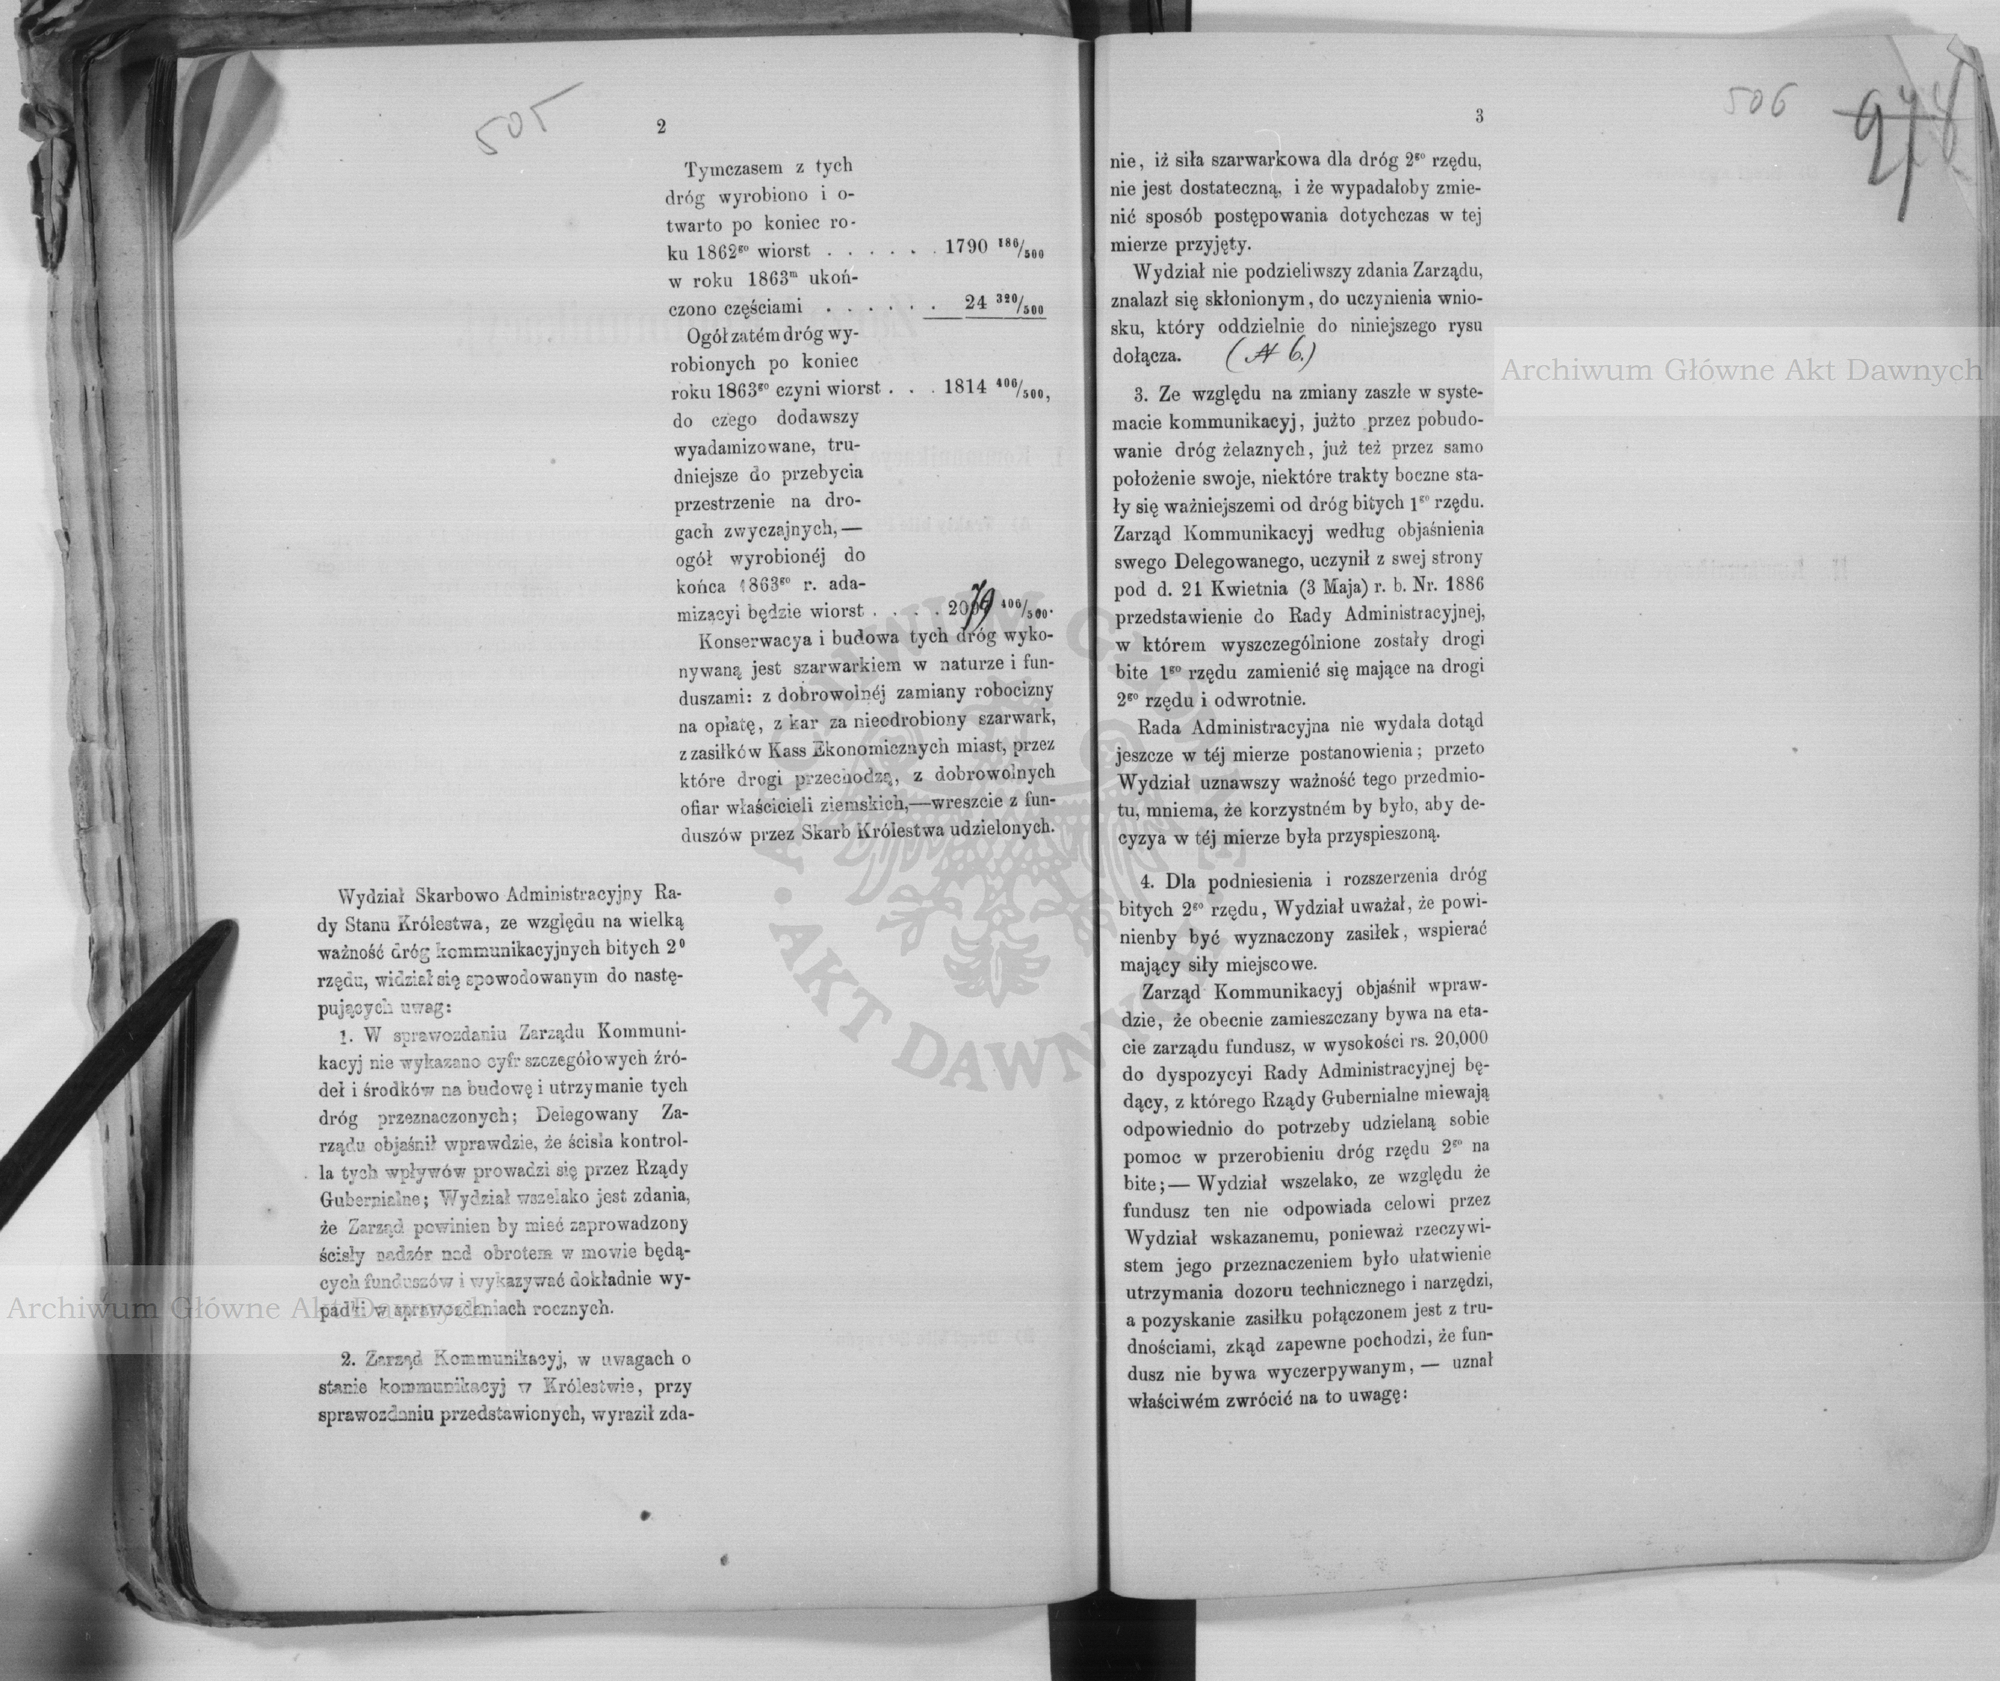 505
2
Tymczasem z tych
dróg wyrobiono i o-
twarto po koniec ro-
ku 1862go wiorst . . . . . . 1790 186/500
w roku 1863m ukoń-
czono częściami . . . . . . 24 320/500
Ogół zatém dróg wy-
robionych po koniec
roku 1863go czyni wiorst . . . 1814 406/500,
do czego dodawszy
wyadamizowane, tru-
dniejsze do przebycia
przestrzenie na dro-
gach zwyczajnych,—
ogół wyrobionéj do
końca 1863go r. ada-
mizacyi będzie wiorst . . . . 2079 406/500.
Konserwacya i budowa tych dróg wyko-
nywaną jest szarwarkiem w naturze i fun-
duszami: z dobrowolnéj zamiany robocizny
na opłatę, z kar za nieodrobiony szarwark,
z zasiłków Kass Ekonomicznych miast, przez
które drogi przechodzą, z dobrowolnych
ofiar właścicieli ziemskich,—wreszcie z fun-
duszów przez Skarb Królestwa udzielonych.
Wydział Skarbowo Administracyjny Ra-
dy Stanu Królestwa, ze względu na wielką
ważność dróg kommunikacyjnych bitych 2o
rzędu, widział się spowodowanym do nastę-
pujących uwag:
1. W sprawozdaniu Zarządu Kommuni-
kacyj nie wykazano cyfr szczegółowych źró-
deł i środków na budowę i utrzymanie tych
dróg przeznaczonych; Delegowany Za-
rządu objaśnił wprawdzie, że ścisła kontrol-
la tych wpływów prowadzi się przez Rządy
Gubernialne; Wydział wszelako jest zdania,
że Zarząd powinien by mieć zaprowadzony
ścisły nadzór nad obrotem w mowie będą-
cych funduszów i wykazywać dokładnie wy-
padki w sprawozdaniach rocznych.
2. Zarząd Kommunikacyj, w uwagach o
stanie kommunikacyj w Królestwie, przy
sprawozdaniu przedstawionych, wyraził zda-
506
3
nie, iż siła szarwarkowa dla dróg 2go rzędu,
nie jest dostateczną, i że wypadałoby zmie-
nić sposób postępowania dotychczas w tej
mierze przyjęty.
Wydział nie podzieliwszy zdania Zarządu,
znalazł się skłonionym, do uczynienia wnio-
sku, który oddzielnie do niniejszego rysu
dołącza. (N 6.)
3. Ze względu na zmiany zaszłe w syste-
macie kommunikacyj, jużto przez pobudo-
wanie dróg żelaznych, już też przez samo
położenie swoje, niektóre trakty boczne sta-
ły się ważniejszemi od dróg bitych 1go rzędu.
Zarząd Kommunikacyj według objaśnienia
swego Delegowanego, uczynił z swej strony
pod d. 21 Kwietnia (3 Maja) r. b. Nr. 1886
przedstawienie do Rady Administracyjnej,
w którem wyszczególnione zostały drogi
bite 1go rzędu zamienić się mające na drogi
2go rzędu i odwrotnie.
Rada Administracyjna nie wydała dotąd
jeszcze w téj mierze postanowienia; przeto
Wydział uznawszy ważność tego przedmio-
tu, mniema, że korzystném by było, aby de-
cyzya w téj mierze była przyspieszoną.
4. Dla podniesienia i rozszerzenia dróg
bitych 2go rzędu, Wydział uważał, że powi-
nienby być wyznaczony zasiłek, wspierać
mający siły miejscowe.
Zarząd Kommunikacyj objaśnił wpraw-
dzie, że obecnie zamieszczany bywa na eta-
cie zarządu fundusz, w wysokości rs. 20,000
do dyspozycyi Rady Administracyjnej bę-
dący, z którego Rządy Gubernialne miewają
odpowiednio do potrzeby udzielaną sobie
pomoc w przerobieniu dróg rzędu 2go na
bite;— Wydział wszelako, ze względu że
fundusz ten nie odpowiada celowi przez
Wydział wskazanemu, ponieważ rzeczywi-
stem jego przeznaczeniem było ułatwienie
utrzymania dozoru technicznego i narzędzi,
a pozyskanie zasiłku połączonem jest z tru-
dnościami, zkąd zapewne pochodzi, że fun-
dusz nie bywa wyczerpywanym, — uznał
właściwém zwrócić na to uwagę:
Archiwum Główne Akt Dawnych
Archiwum Główne Akt Dawnych
ARCHIWUM GŁÓWNE
AKT DAWNYCH